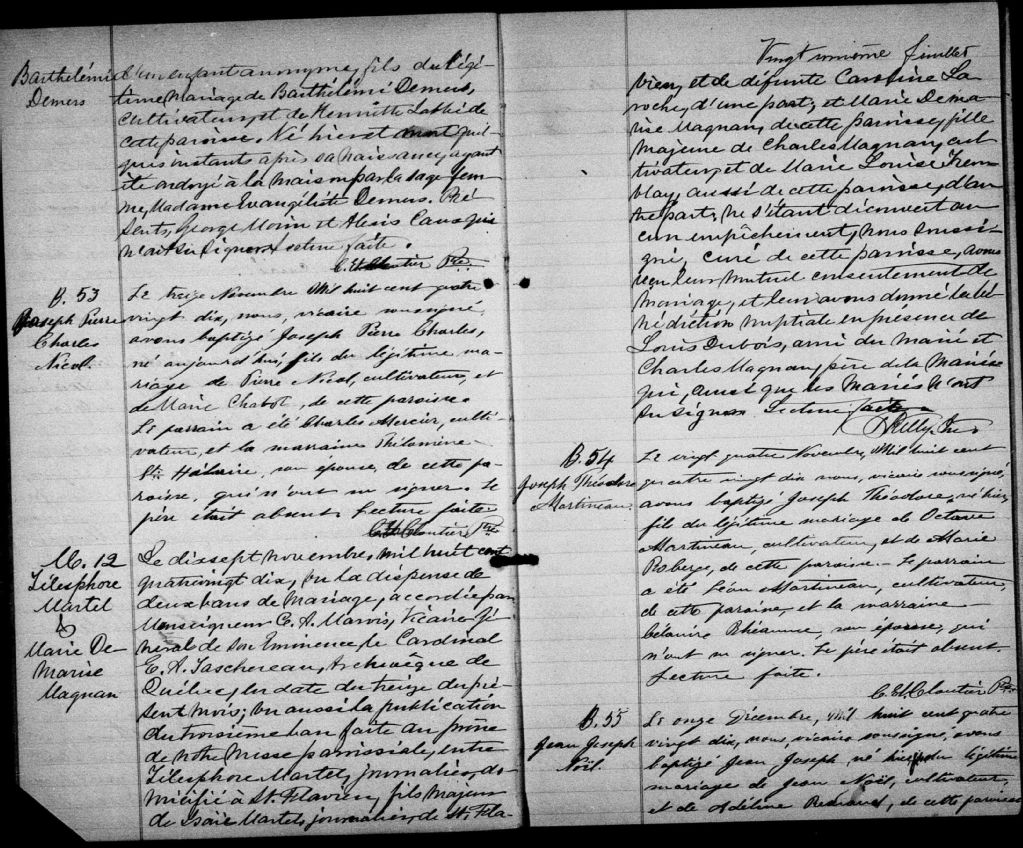 Barthélémi
Demers
d'un enfant anonyme, fils du légi-
time mariage de Barthélémi Demers,
cultivateur, et de Henriette
cette paroisse. Né hier et mort quel-
ques instants après sa naissance, ayant
été ondoyé à la maison par la sage fem-
me, Madame Evangéliste Demers. Pré
sents, George Morin et Alexis qui
n'ont su signer. Lecture faite.
C. E. Cloutier Ptre
B. 53
Joseph Pierre
Charles
Nicol.
Le treize Novembre Mil huit cent quatre
vingt dix, nous, vicaire soussigné,
avons baptizé Joseph Pierre Charles,
né aujourd'hui, fils du légitime ma-
riage de Pierre Nicol, cultivateur, et
de Marie Chabot, de cette paroisse.
Le parrain a été Charles Mercier, culti-
vateur, et la marraine Philomène
St. Hilaire, son épouse, de cette pa-
roisse, qui n'ont su signer. Le
père était absent. Lecture faite
C. E. Cloutier Ptre
M. 12
Télesphore
Martel
&
Marie De-
Marise
Magnan
Le dix sept novembre, mil huit cent
quatre vingt dix, vu la dispense de
deux bans de mariage, accordée par
Monseigneur C. A. Marois, Vicaire Gé-
néral de Son Eminence le Cardinal
E. A. Taschereau, Archevêque de
Québec, en date du treize du pré-
sent mois; vu aussi la publication
du troisième ban faite au prône
de notre Messe paroissiale, entre
Télesphore Martel, journalier, do-
micilié à St. Flavien, fils majeur
de Isaïe Martel, journalier, de St. Fla-
Vingt unième feuillet
vien, et de défunte Caroline La-
roche, d'une part; et Marie Dema-
rise Magnan, de cette paroisse, fille
majeure de Charles Magnan, cul-
tivateur, et de Marie Louise Trem-
blay, aussi de cette paroisse, d'au-
tre part; ne s'étant découvert au-
cun empêchement, nous soussi-
gné, curé de cette paroisse, avons
reçu leur mutuel consentement de
mariage, et leur avons donné la bé-
nédiction nuptiale en présence de
Louis Dubois, ami du marié et
Charles Magnan, père de la Mariée
qui, ainsi que les Mariés n'ont
su signer. Lecture faite.
B. 54
Joseph Théodore
Martineau.
Le vingt quatre Novembre, Mil huit cent
quatre vingt dix nous, vicaire soussigné,
avons baptizé Joseph Théodore, né hier,
fils du légitime mariage de Octave
Martineau, cultivateur, et de Marie
Roberge, de cette paroisse. Le parrain
a été Léon Martineau, cultivateur,
de cette paroisse, et la marraine
Rhéaume, son épouse, qui
n'ont su signer. Le père était absent.
Lecture faite.
C. E. Cloutier Ptre
B. 55
Jean Joseph
Noël.
Le onze Décembre, mil huit cent quatre
vingt dix, nous, vicaire soussigné, avons
baptizé Jean Joseph, né hier, du légitime
mariage de Jean Noël, cultivateur,
et de Adéline de cette paroisse